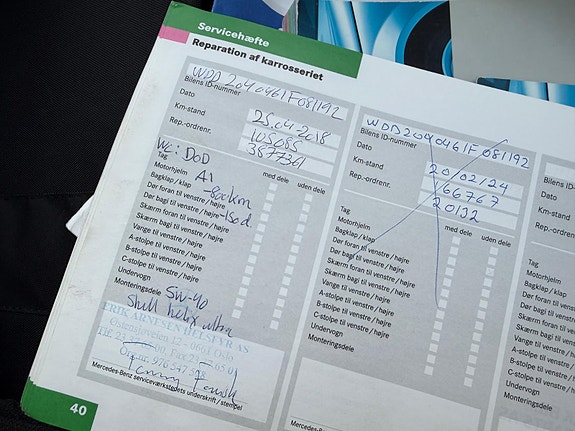 Servicehæfte
Reparation af karrosseriet
WDD2040461F081192
Bilens ID-nummer
Dato 25.04-2018
Km-stand 105085
Rep.-ordrenr. 3877361
WC: DOD
med dele uden dele
Tag
Motorhjelm A1
Bagklap / kalp -80ckm
Dør foran til venstre / højre
Dør bagi til venstre / højre -1sed.
Skærm foran til venstre / højre
Skærm bagi til venstre / højre
Vange til venstre / højre
A-stolpe til venstre / højre
B-stolpe til venstre / højre
C-stolpe til venstre / højre
Undervogn
Monteringsdele 5W-40
Shell helix ultra
ERIK ARNESEN HELSFYR AS
0661 Oslo
Mercedes-Benz serviceværksteds underskrift / stempel
40
WDD2040461F081192
Bilens ID-nummer
Dato 20/02/24
Km-stand 166767
Rep.-ordrenr. 20132
med dele uden dele
Tag
Motorhjelm
Bagklap / kalp
Dør foran til venstre / højre
Dør bagi til venstre / højre
Skærm foran til venstre / højre
Skærm bagi til venstre / højre
Vange til venstre / højre
A-stolpe til venstre / højre
B-stolpe til venstre / højre
C-stolpe til venstre / højre
Undervogn
Monteringsdele
Mercedes-Benz serv
Bilens ID-n
Dato
Km-stand
Rep.-ordrenr
Tag
Motorhjelm
Bagklap / kalp
Dør foran til ven
Dør bagi til vens
Skærm foran til
Skærm bagi til
Vange til venstr
A-stolpe til ve
B-stolpe til ve
C-stolpe til v
Undervogn
Monterings